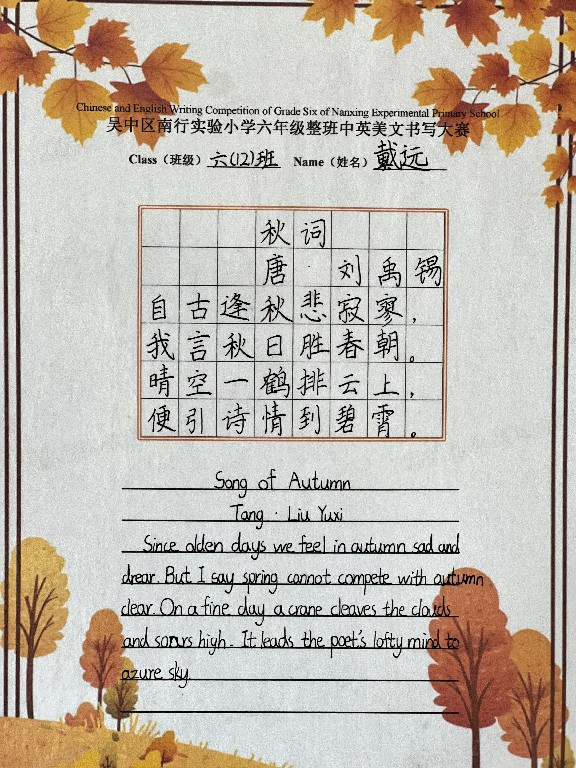 Chinese and English Writing Competition of Grade Six of Nanxing Experimental Primary School
吴中区南行实验小学六年级整班中英美文书写大赛
Class（班级） 六(12)班 Name（姓名） 戴远
秋词
唐·刘禹锡
自古逢秋悲寂寥，
我言秋日胜春朝。
晴空一鹤排云上，
便引诗情到碧霄。
Song of Autumn
Tang · Liu Yuxi
Since olden days we feel in autumn sad and
drear. But I say spring cannot compete with autumn
clear. On a fine day a crane cleaves the clouds
and soars high. It leads the poet's lofty mind to
azure sky.